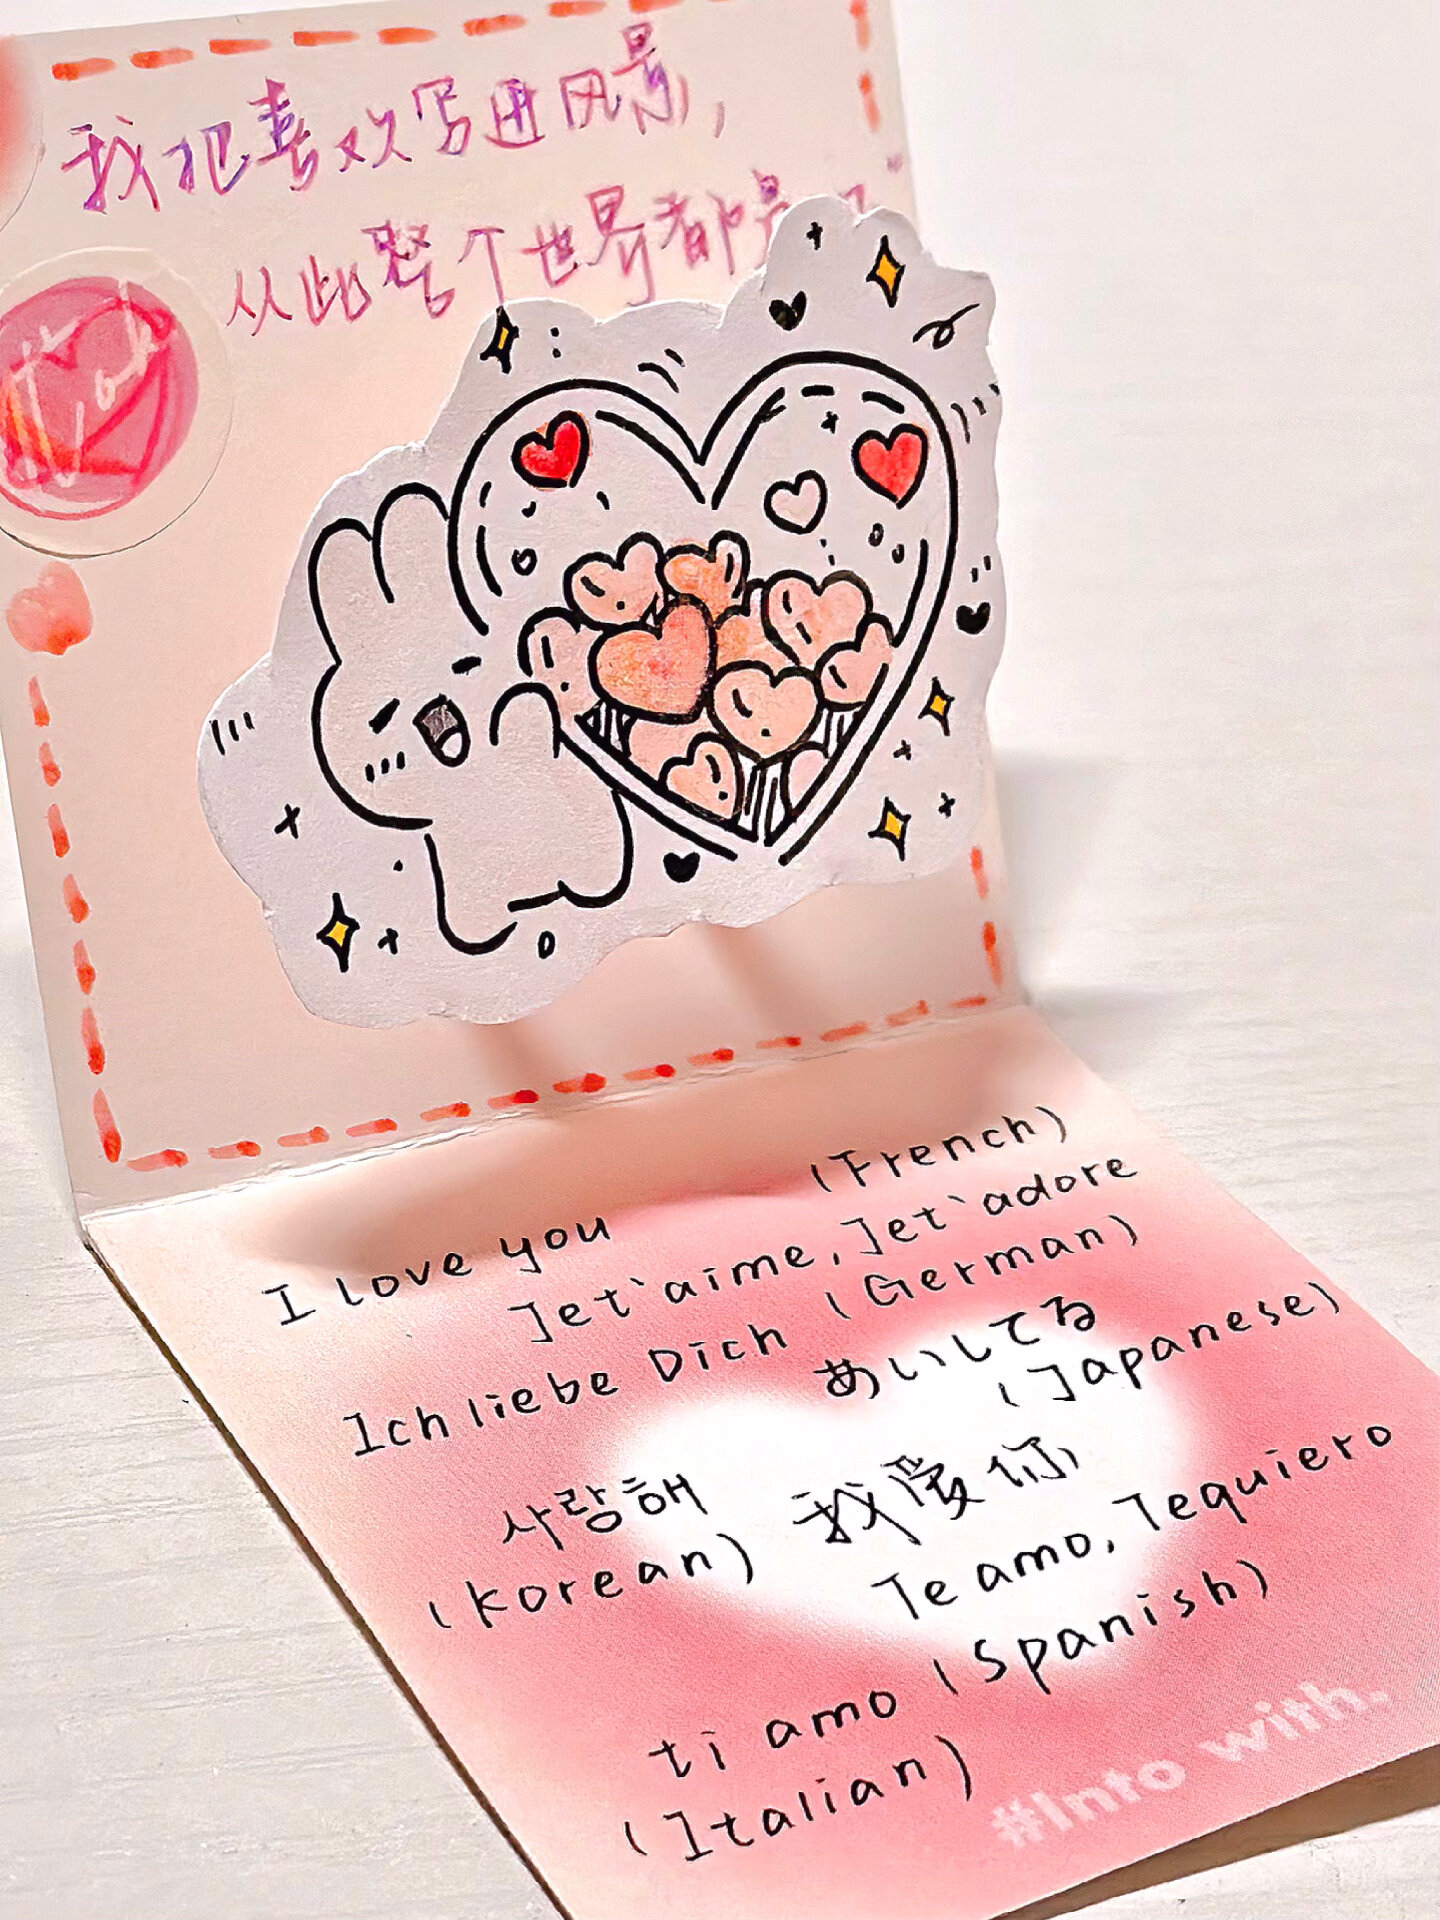 我把喜欢写进风景，
从此整个世界都是
I love you
(French)
Je t`aime, Je t`adore
Ich liebe Dich (German)
あいしてる
(Japanese)
사랑해
(Korean)
我爱你
Te amo, Te quiero
(Spanish)
ti amo
(Italian)
#Into with.